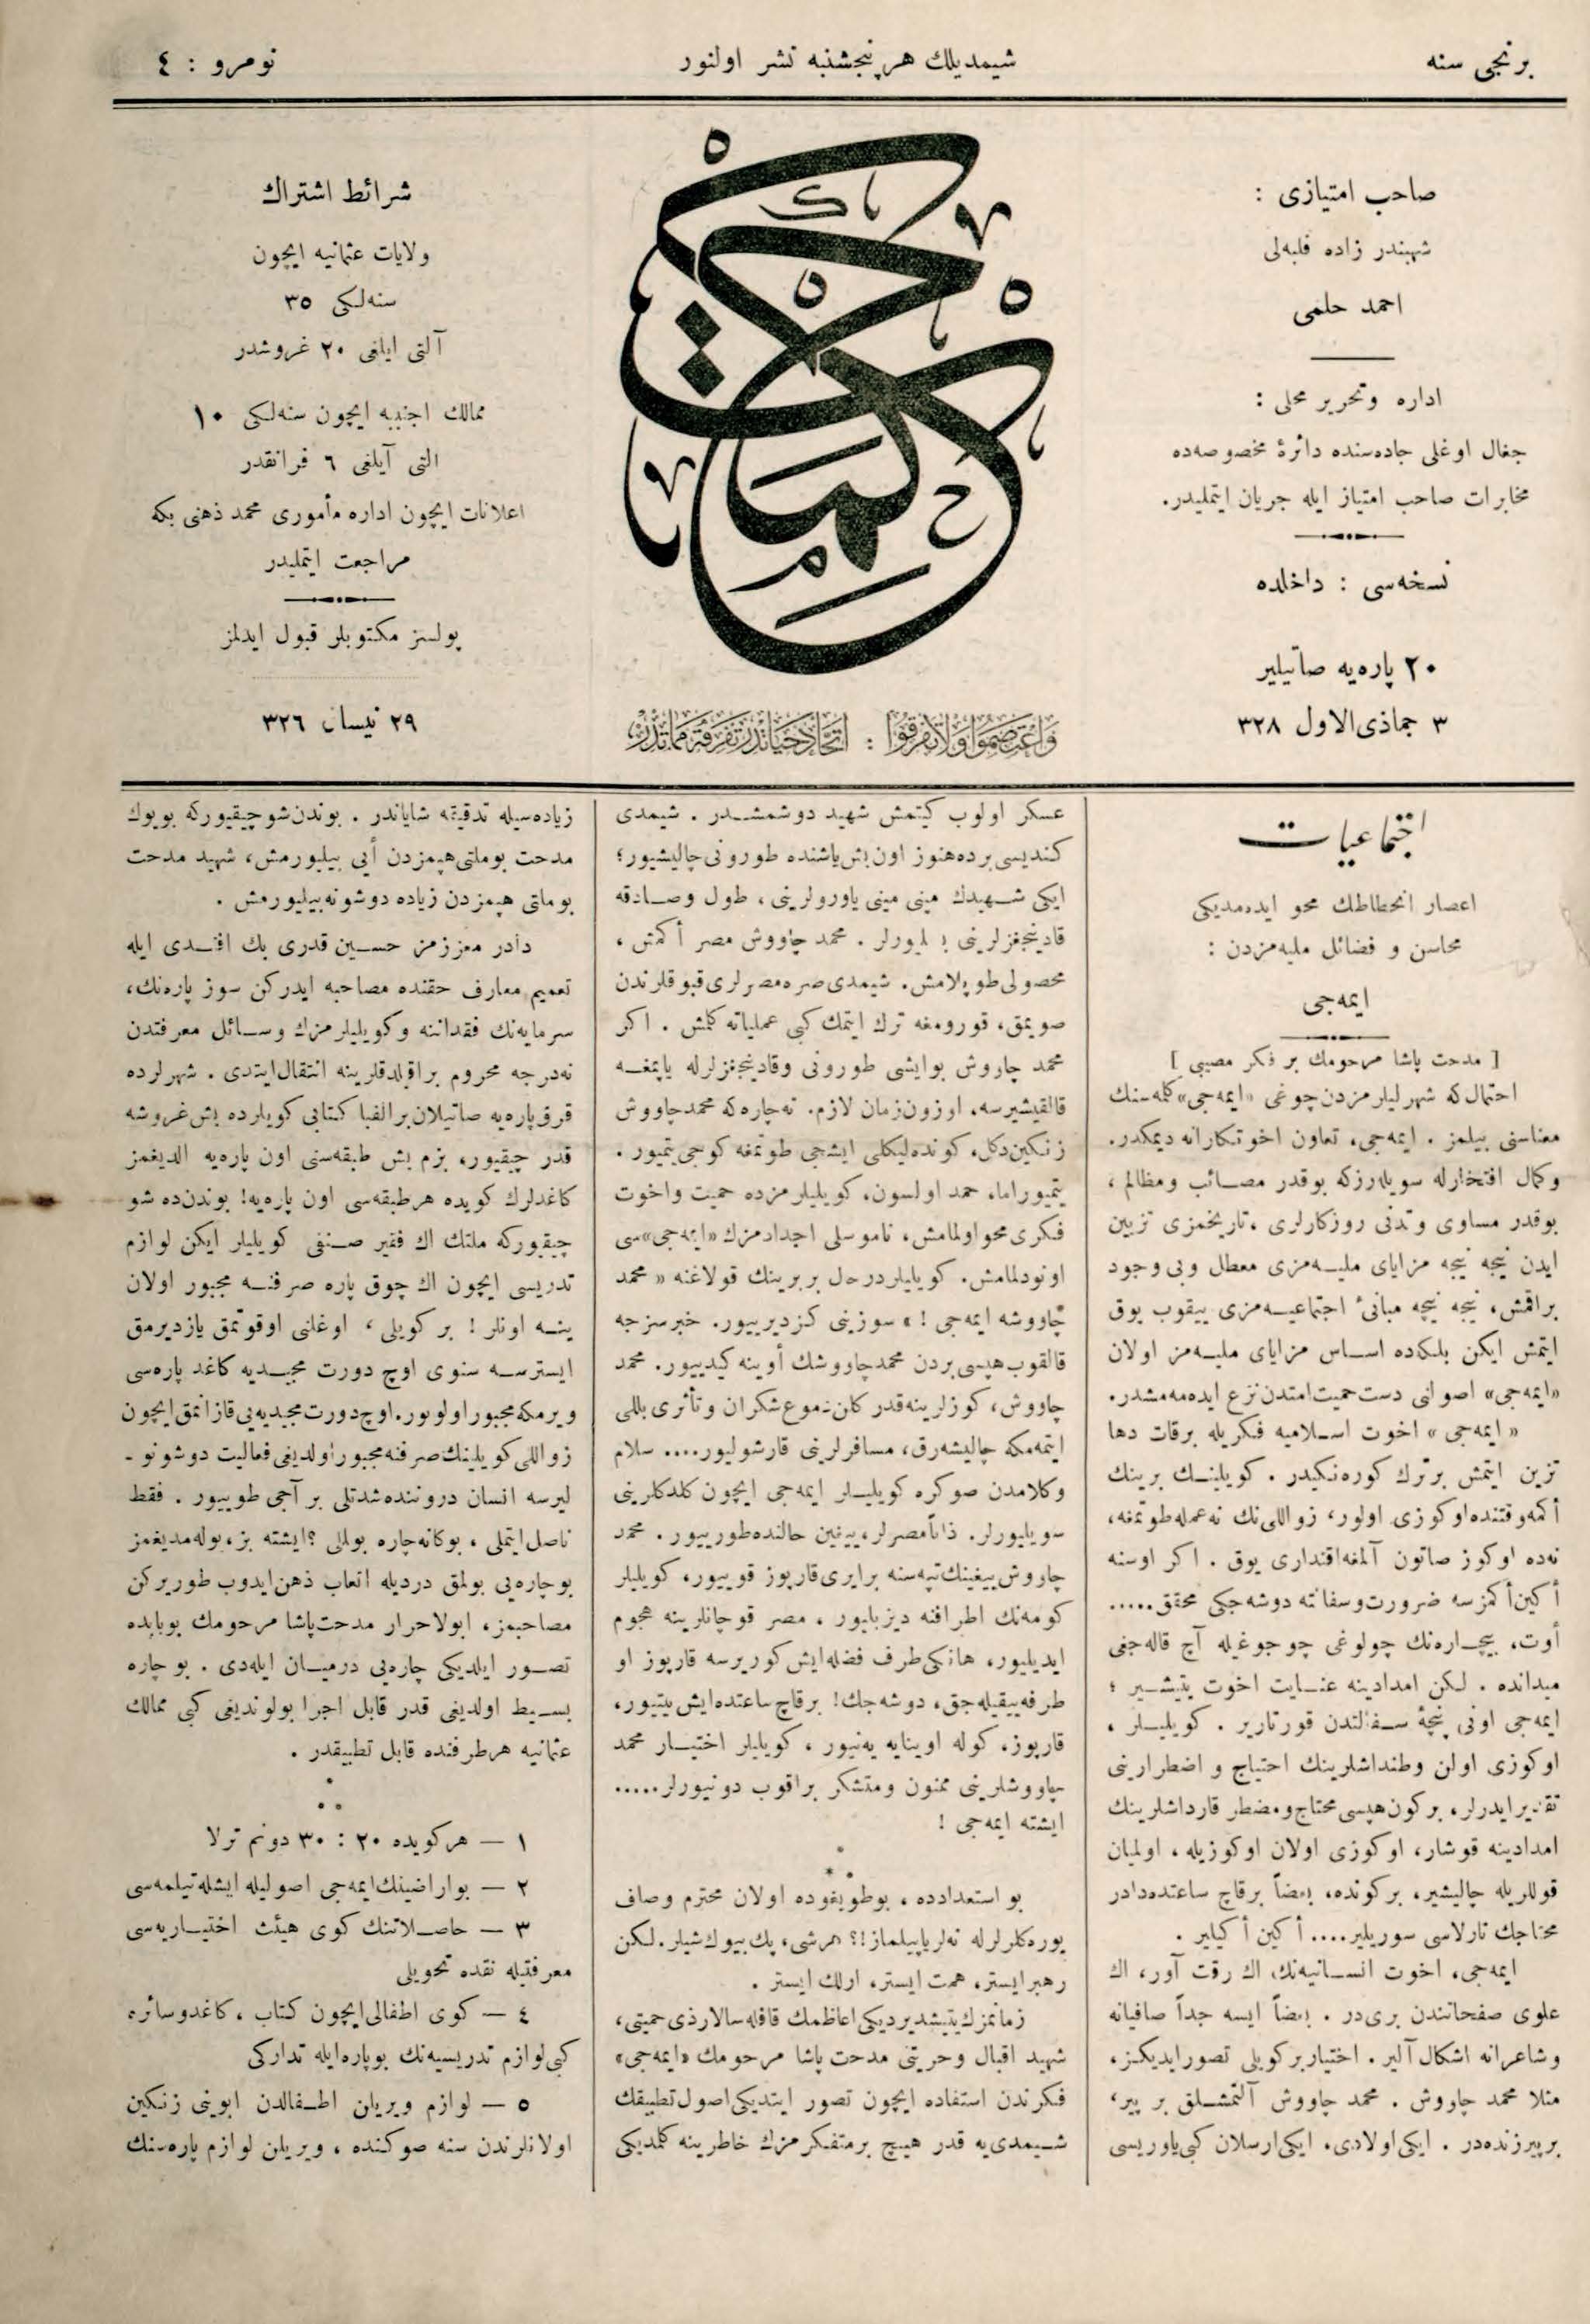 برنجی سنه
شیمدیلك هر پنجشنبه نشر اولنور
نومرو : ٤
صاحب امتیازی :
شهبندر زاده فلبه‌لی
احمد حلمی
اداره وتحریر محلی :
جغال اوغلی جاده‌سنده دائرهٔ مخصوصه‌ده
مخابرات صاحب امتیاز ایله جریان ایتملیدر.
نسخه‌سی : داخلده
٢٠ پاره‌یه صاتیلیر
٣ جماذی‌الاول ٣٢٨
حكمت
واعتصموا ولاتفرقوا : اتحاد حیاتدر تفرقه مماتدر
شرائط اشتراك
ولایات عثمانیه ایچون
سنه‌لكی ٣٥
آلتی ایلغی ٢٠ غروشدر
ممالك اجنبیه ایچون سنه‌لكی ١٠
التی آیلغی ٦ فرانقدر
اعلانات ایچون اداره مأموری محمد ذهنی بكه
مراجعت ایتملیدر
پولسز مكتوبلر قبول ایدلمز
٢٩ نیسان ٣٢٦
اجتماعیات
اعصار انحطاطك محو ایده‌مدیكی
محاسن و فضائل ملیه‌مزدن :
ایمه‌جی
[ مدحت پاشا مرحومك بر فكر مصیبی ]
احتمال كه شهرلیلرمزدن چوغی «ایمه‌جی» كلمه‌سنك
معناسنی بیلمز . ایمه‌جی، تعاون اخوتكارانه دیمكدر.
وكمال افتخارله سویلرزكه بوقدر مصائب ومظالم ،
بوقدر مساوی وتدنی روزكارلری ،تاریخمزی تزیین
ایدن نیجه نیجه مزایای ملیه‌مزی معطل وبی وجود
براقمش، نیجه نیچه مبانیٔ اجتماعیه‌مزی ییقوب یوق
ایتمش ایكن بلكه‌ده اساس مزایای ملیه‌مز اولان
«ایمه‌جی» اصولنی دست حمیت امتدن نزع ایده‌مه‌مشدر.
« ایمه‌جی » اخوت اسلامیه فكریله برقات دها
تزین ایتمش برترك كوره‌نكیدر . كویلینك برینك
أكمه‌وقتنده‌اوكوزی اولور، زواللی‌نك نه‌عمله‌طوتمغه،
نه‌ده اوكوز صاتون آلمغه‌اقتداری یوق . اكر اوسنه
أكین‌أكمزسه ضرورت‌وسفالته دوشه‌جكی محقق.....
أوت، بیچاره‌نك چولوغی چوجوغیله آج قاله‌جغی
میدانده . لكن امدادینه عنایت اخوت یتیشیر ؛
ایمه‌جی اونی پنچهٔ سفالتدن قورتاریر . كویلیلر ،
اوكوزی اولن وطنداشلرینك احتیاج و اضطرارینی
تقدیرایدرلر، بركون‌هپسی محتاج‌ومضطر قارداشلرینك
امدادینه قوشار، اوكوزی اولان اوكوزیله ، اولمیان
قوللریله چالیشیر، بركونده، بعضاً برقاچ ساعتده‌دادر
محتاجك تارلاسی سوریلیر.... أكین أكیلیر .
ایمه‌جی، اخوت انسانیه‌نك اك رقت آور، اك
علوی صفحاتندن بری‌در . بعضاً ایسه جداً صافیانه
وشاعرانه اشكال آلیر . اختیاربركویلی تصورایدیكز،
مثلا محمد چاروش . محمد چاووش آلتمشلق بر پیر،
برپیرزنده‌در . ایكی‌اولادی، ایكی‌ارسلان كبی‌یاوریسی
عسكر اولوب كیتمش شهید دوشمشدر . شیمدی
كندیسی برده‌هنوز اون‌بش‌یاشنده طورونی‌چالیشیور؛
ایكی شهیدك مینی مینی یاورولرینی ، طول وصادقه
قادینجغزلرینی بسلیورلر . محمد چاووش مصر أكمش ،
محصولی‌طوپلامش. شیمدی‌صره‌مصرلری‌قبوقلرندن
صویمق، قورومغه ترك ایتمك كبی عملیاته كلمش . اكر
محمد چاروش بوایشی طورونی وقادینجغزلرله یاپمغه
قالقیشیرسه، اوزون‌زمان لازم. نه‌چاره‌كه محمدچاووش
زنكین‌دكل، كونده‌لیكلی ایشجی طوتمغه كوجی‌یتمیور .
یتمیوراما، حمد اولسون، كویلیلرمزده حمیت واخوت
فكری محواولمامش، ناموسلی اجدادمزك «ایمه‌جی»سی
اونودلمامش. كویلیلردرحال بربرینك قولاغنه « محمد
چاووشه ایمه‌جی ! » سوزینی كزدیرییور. خبرسزجه
قالقوب‌هپسی‌بردن محمدچاووشك أوینه كیدییور. محمد
چاووش، كوزلرینه‌قدركلن‌دموع‌شكران وتأثری‌بللی
ایتمه‌مكه چالیشه‌رق، مسافرلرینی قارشولیور.... سلام
وكلامدن صوكره كویلیلر ایمه‌جی ایچون كلدكلرینی
سویلیورلر. ذاتاًمصرلر،ییغین حالنده‌طورییور. محمد
چاروش‌ییغینك‌تپه‌سنه برایری‌قارپوز قوییور، كویلیلر
كومه‌نك اطرافنه دیزیلیور ، مصر قوچانلرینه هجوم
ایدیلیور، هانكی‌طرف فضله‌ایش‌كوریرسه قارپوز او
طرفه‌ییقیله‌جق، دوشه‌جك! برقاچ‌ساعتده‌ایش‌بیتیور،
قارپوز، كوله اوینایه یه‌نیور ، كویلیلر اختیار محمد
چاووشلرینی ممنون ومتشكر براقوب دونیورلر.....
ایشته ایمه‌جی !
بو استعدادده ، بوطویغوده اولان محترم وصاف
یوره‌كلرلرله نه‌لریاپیلماز!؟ هرشی، پك‌بیوك‌شیلر. لكن
رهبرایستر، همت ایستر، ارلك ایستر .
زمانمزك‌یتیشدیردیكی‌اعاظمك قافله‌سالارذی‌حمیتی،
شهید اقبال وحریتی مدحت پاشا مرحومك «ایمه‌جی»
فكرندن استفاده ایچون تصور ایتدیكی‌اصول‌تطبیقك
شیمدی‌یه قدر هیچ برمتفكرمزك خاطرینه كلمدیكی
زیاده‌سیله تدقیقه شایاندر . بوندن‌شوچیقیوركه بویوك
مدحت بوملتی‌هپمزدن أیی بیلیورمش، شهید مدحت
بوملتی هپمزدن زیاده دوشونه‌بیلیورمش .
دادر معززمز حسین قدری بك افندی ایله
تعمیم معارف حقنده مصاحبه ایدركن سوز پاره‌نك،
سرمایه‌نك فقداننه وكویلیلرمزك وسائل معرفتدن
نه‌درجه محروم براقیلدقلرینه انتقال‌ایتدی . شهرلرده
قرق‌پاره‌یه صاتیلان‌برالفبا كتابی كویلرده بش‌غروشه
قدر چیقیور، بزم بش طبقه‌سنی اون پاره‌یه الدیغمز
كاغدلرك كویده هرطبقه‌سی اون پاره‌یه! بوندن‌ده شو
چیقیوركه ملتك اك فقیر صنفی كویلیلر ایكن لوازم
تدریسی ایچون اك چوق پاره صرفنه مجبور اولان
ینه اونلر ! بر كویلی ، اوغلنی اوقوتمق یازدیرمق
ایسترسه سنوی اوچ دورت مجیدیه كاغد پاره‌سی
ویرمكه‌مجبوراولویور.اوچ‌دورت‌مجیدیه‌یی‌قازانمق‌ایچون
زواللی‌كویلینك‌صرفنه‌مجبوراولدیغی‌فعالیت دوشونو -
لیرسه انسان دروننده‌شدتلی بر آجی طوییور . فقط
ناصل‌ایتملی ، بوكانه‌چاره بولملی ؟ایشته بز،بوله‌مدیغمز
بوچاره‌یی بولمق دردیله اتعاب ذهن‌ایدوب طوریركن
مصاحبمز، ابولاحرار مدحت‌پاشا مرحومك بوبابده
تصور ایلدیكی چاره‌یی درمیان ایله‌دی . بوچاره
بسیط اولدیغی قدر قابل اجرا بولوندیغی كبی ممالك
عثمانیه هرطرفنده قابل تطبیقدر .
١ — هركویده ٢٠ : ٣٠ دونم ترلا
٢ — بواراضینك‌ایمه‌جی اصولیله ایشله‌تیلمه‌سی
٣ — حاصلاتنك كوی هیئت اختیاریه‌سی
معرفتیله نقده تحویلی
٤ — كوی اطفالی‌ایچون كتاب ،كاغدوسائره
كبی‌لوازم تدریسیه‌نك بوپاره‌ایله تداركی
٥ — لوازم ویریلن اطفالدن ابوینی زنكین
اولانلرندن سنه صوكنده ، ویریلن لوازم پاره‌سنك